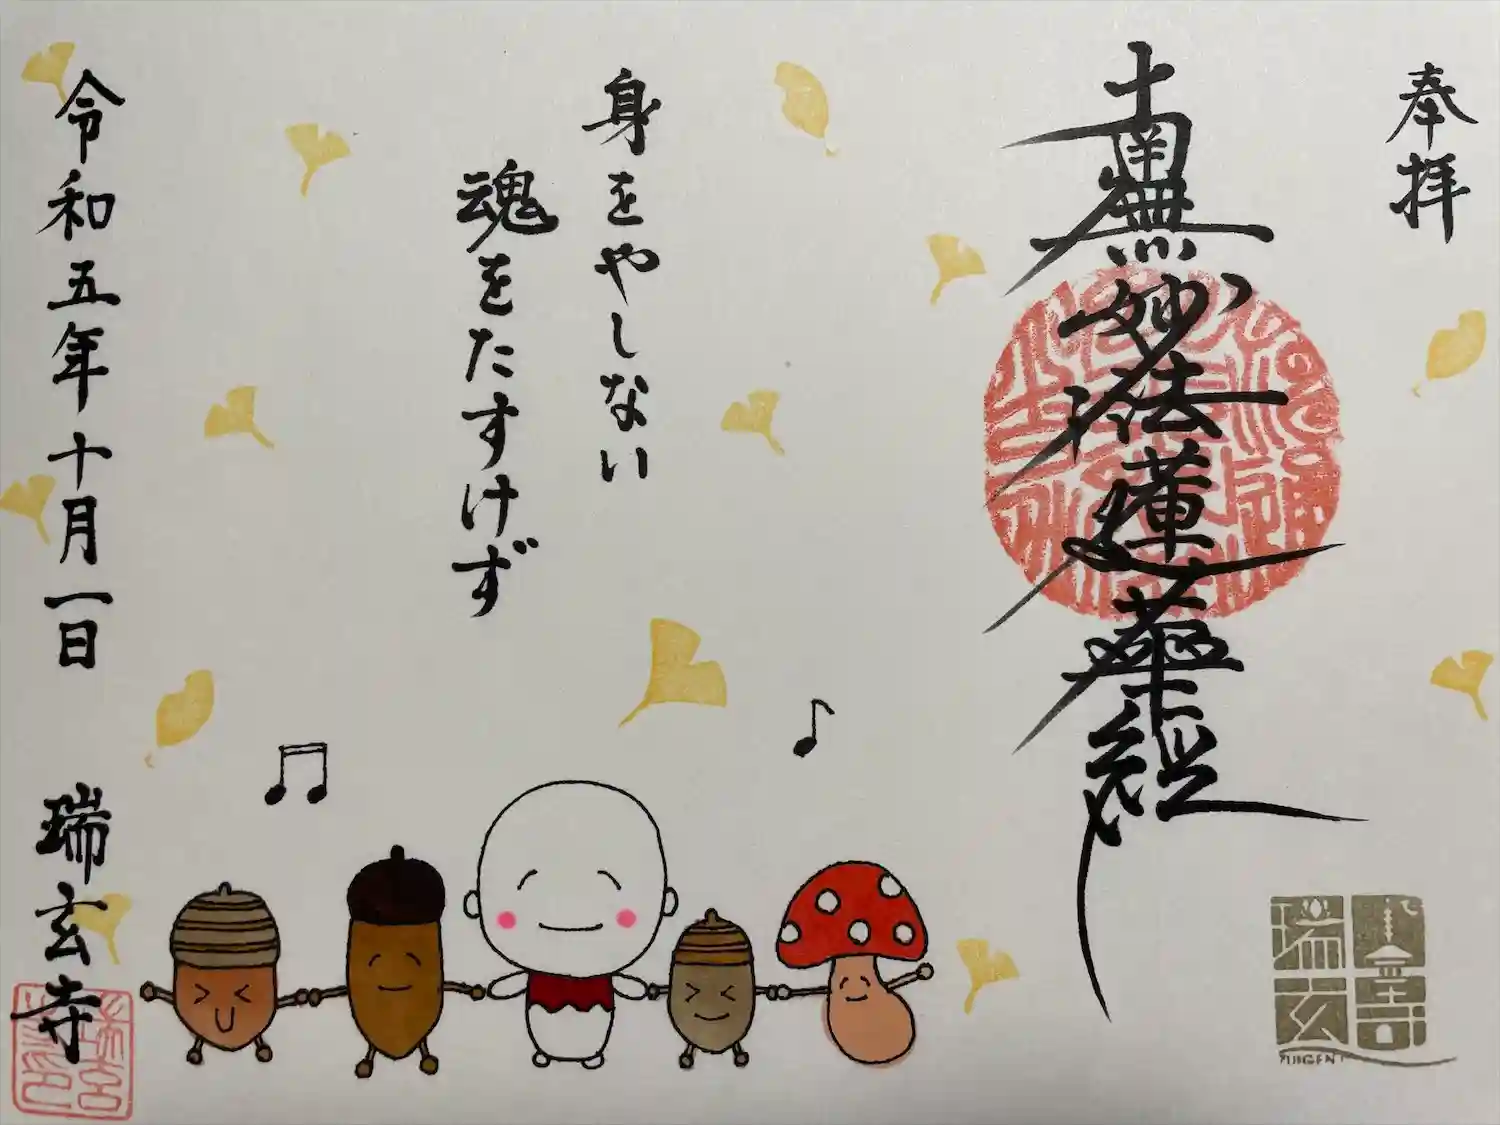 奉拝
南無妙法蓮華経
身をやしない
魂をたすけず
令和五年十月一日
瑞玄寺
瑞玄
ZUIGENJI